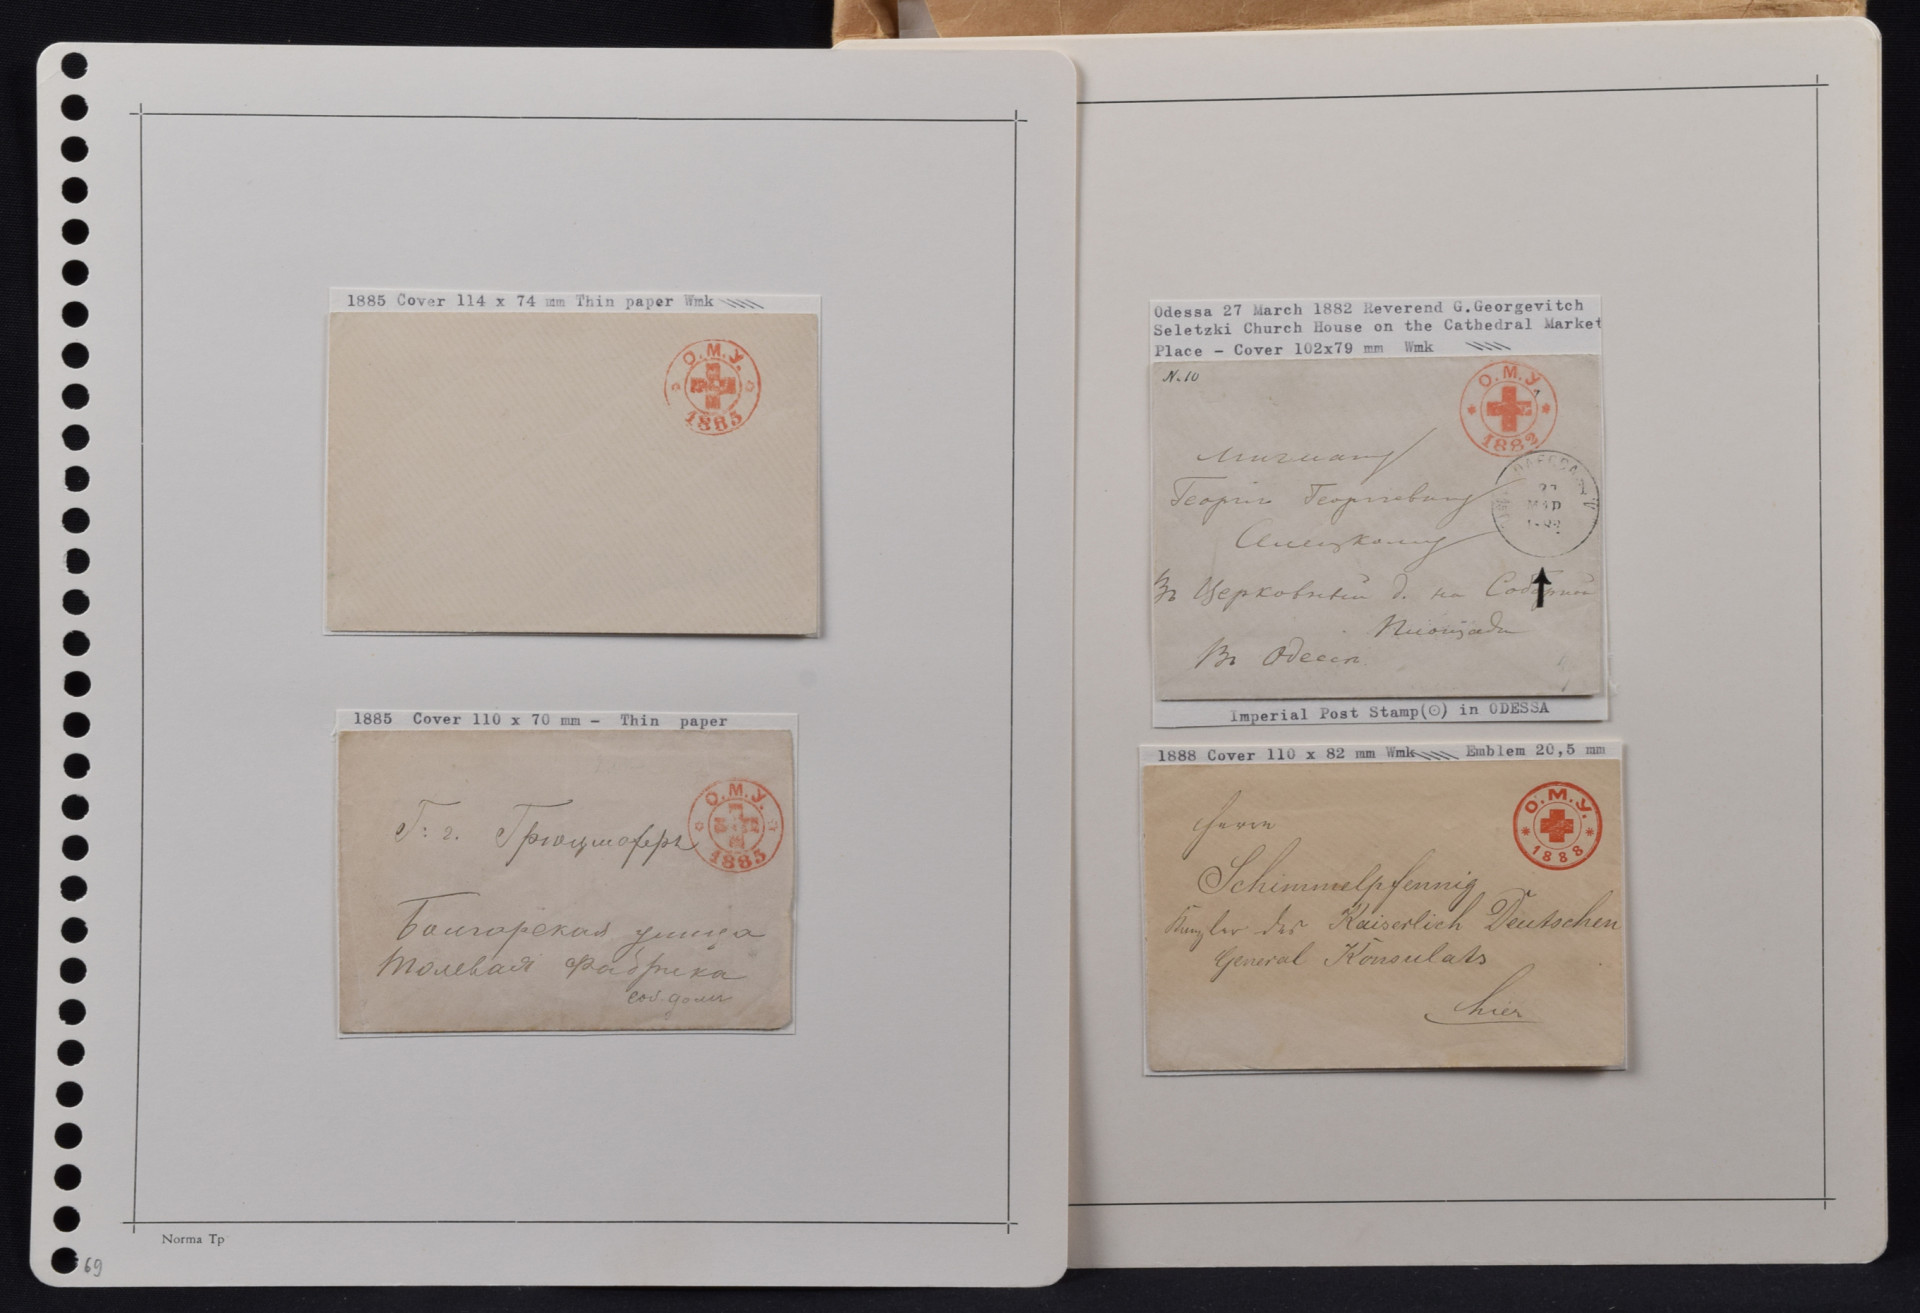 1885 Cover 114 x 74 mm Thin paper Wmk
О.М.У.
1885
1885 Cover 110 x 70 mm - Thin paper
О.М.У.
1885
Г: г. Грюцмахеръ
Болгарская улица
Толевая Фабрика
соб. домъ
Norma Tp
69
Odessa 27 March 1882 Reverend G.Georgevitch
Seletzki Church House on the Cathedral Market
Place - Cover 102x79 mm Wmk
N. 10
О.М.У
1882
ОДЕССА
27
МАР
Георгію Георгіевичу
Въ Церковный д. на Соборной
Площади
Въ Одессѣ.
Imperial Post Stamp(⊙) in ODESSA
1888 Cover 110 x 82 mm Wmk Emblem 20,5 mm
О.М.У.
1888
Herrn
Schimmelpfennig
Kanzler des Kaiserlich Deutschen
General Konsulats
hier